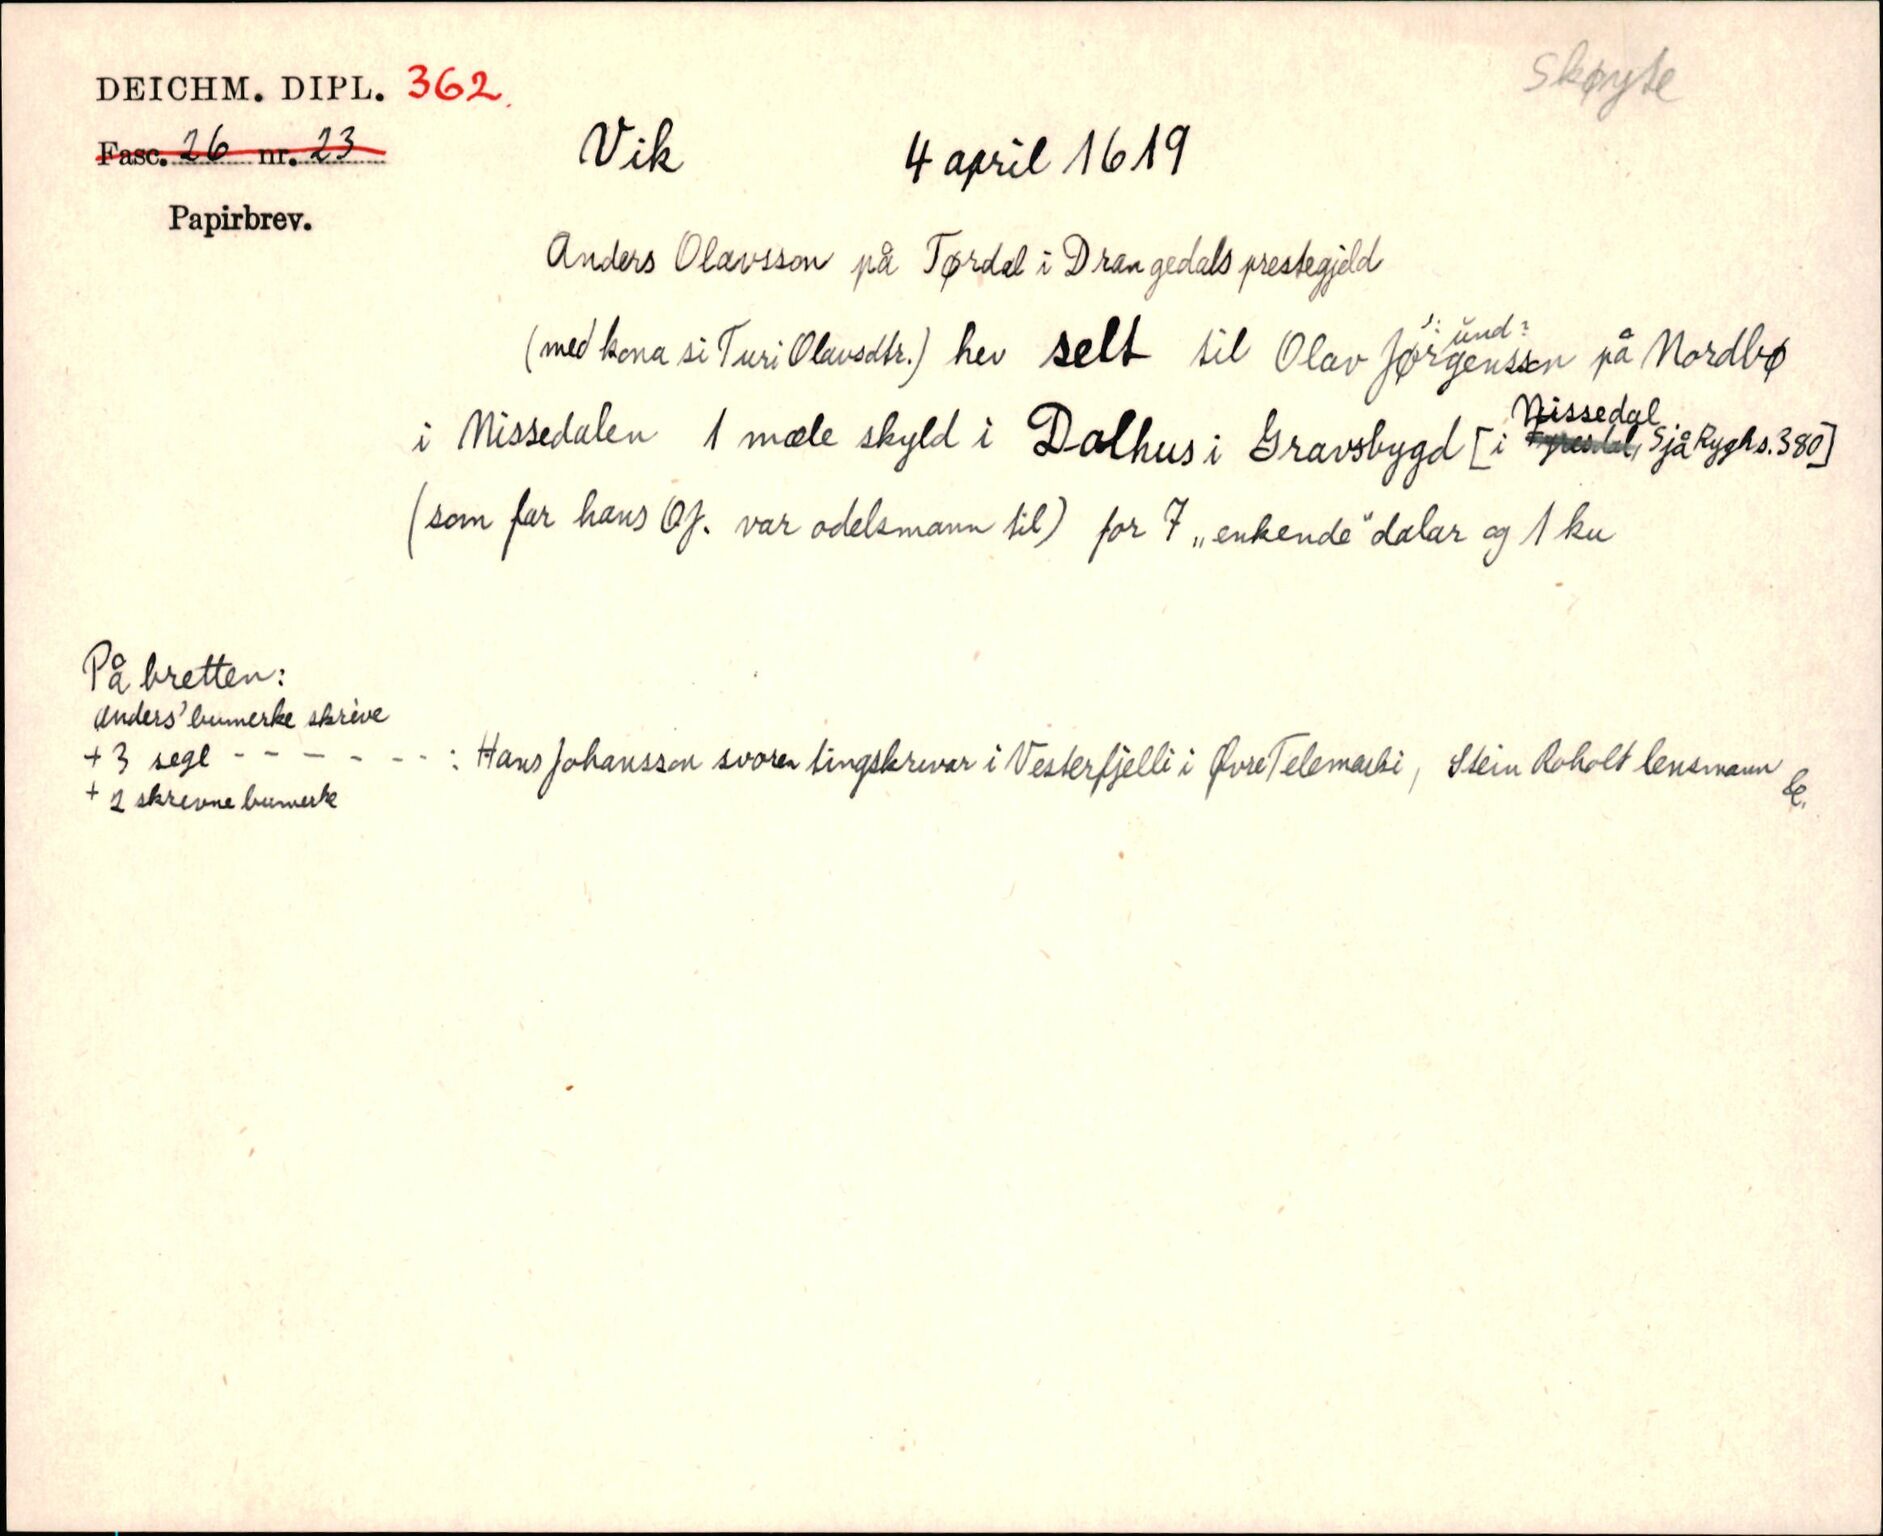 Skøyte
DEICHM. DIPL. 362.
Fasc. 26 nr. 23
Vik 4 april 1619
Papirbrev.
Anders Olavsson på Tørdal i Drangedals prestegjeld
und?
(med kona si Turi Olavsdtr.) hev selt til Olav Jørgensson på Nordbø
Nissedal
i Nissedalen 1 mæle skyld i Dalhus i Gravsbygd [i Fyresdal, Sjå Rygh s. 380]
(som far hans Of. var odelsmann til) for 7 „enkende" dalar og 1 ku
På bretten:
Anders' bumerke skrive
+ 3 segl - - - - - - - : Hans Johansson svoren tingskrivar i Vesterfjelli i Øvre Telemarki, Stein Roholt lensmann &.
+ 2 skrevne bumerke